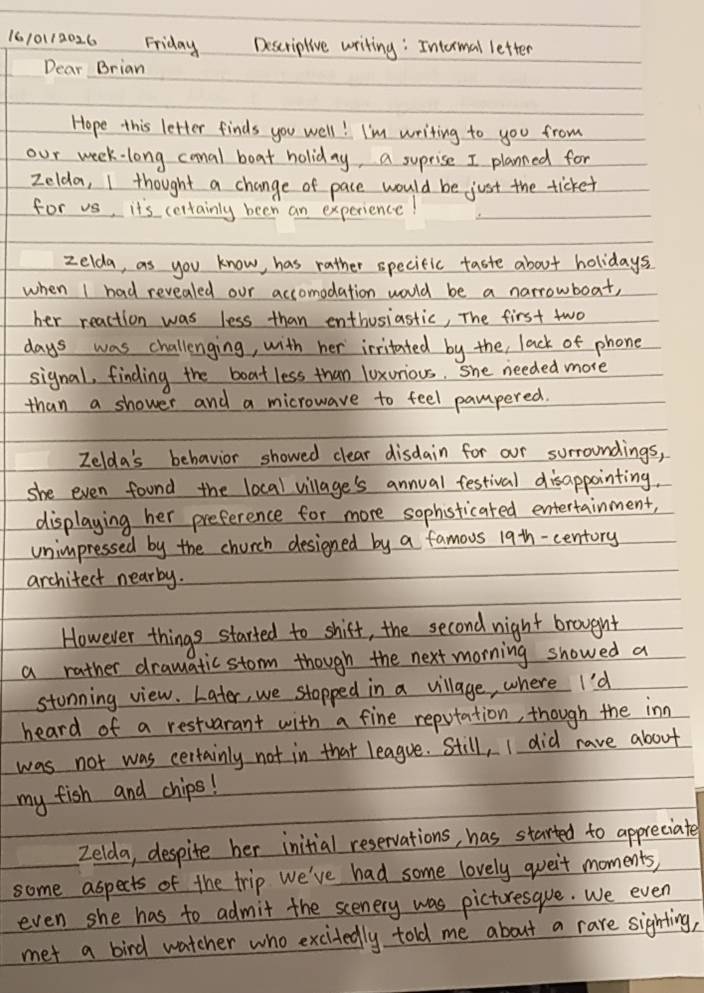 16/01/2026 Friday Descriptive writing: Informal letter
Dear Brian
Hope this letter finds you well! I'm writing to you from
our week-long canal boat holiday, a suprise I planned for
Zelda, I thought a change of pace would be just the ticket
for us, it's certainly been an experience!
Zelda, as you know, has rather specific taste about holidays
when I had revealed our accomodation would be a narrowboat,
her reaction was less than enthusiastic, The first two
days was challenging, with her irritated by the, lack of phone
signal, finding the boat less than luxurious. She needed more
than a shower and a microwave to feel pampered.
Zelda's behavior showed clear disdain for our surroundings,
she even found the local village's annual festival disappointing,
displaying her preference for more sophisticated entertainment,
unimpressed by the church designed by a famous 19th-century
architect nearby.
However things started to shift, the second night brought
a rather dramatic storm though the next morning showed a
stunning view. Later, we stopped in a village, where I'd
heard of a restuarant with a fine reputation, though the inn
was not was certainly not in that league. Still, I did rave about
my fish and chips!
Zelda, despite her initial reservations, has started to appreciate
some aspects of the trip we've had some lovely queit moments,
even she has to admit the scenery was picturesque. We even
met a bird watcher who excitedly told me about a rare sighting,